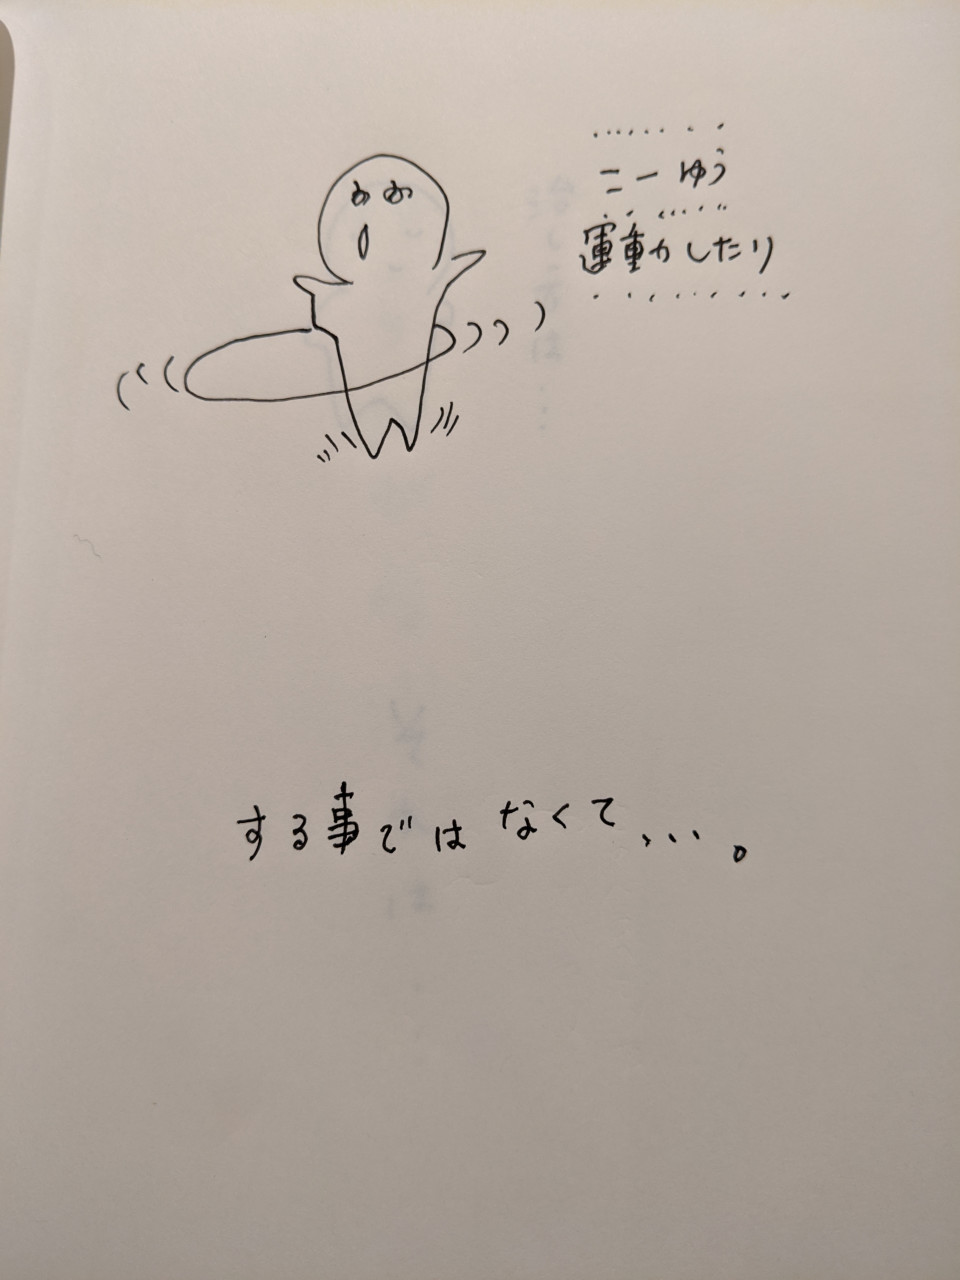 こーゆう
運動したり
する事ではなくて、、、。